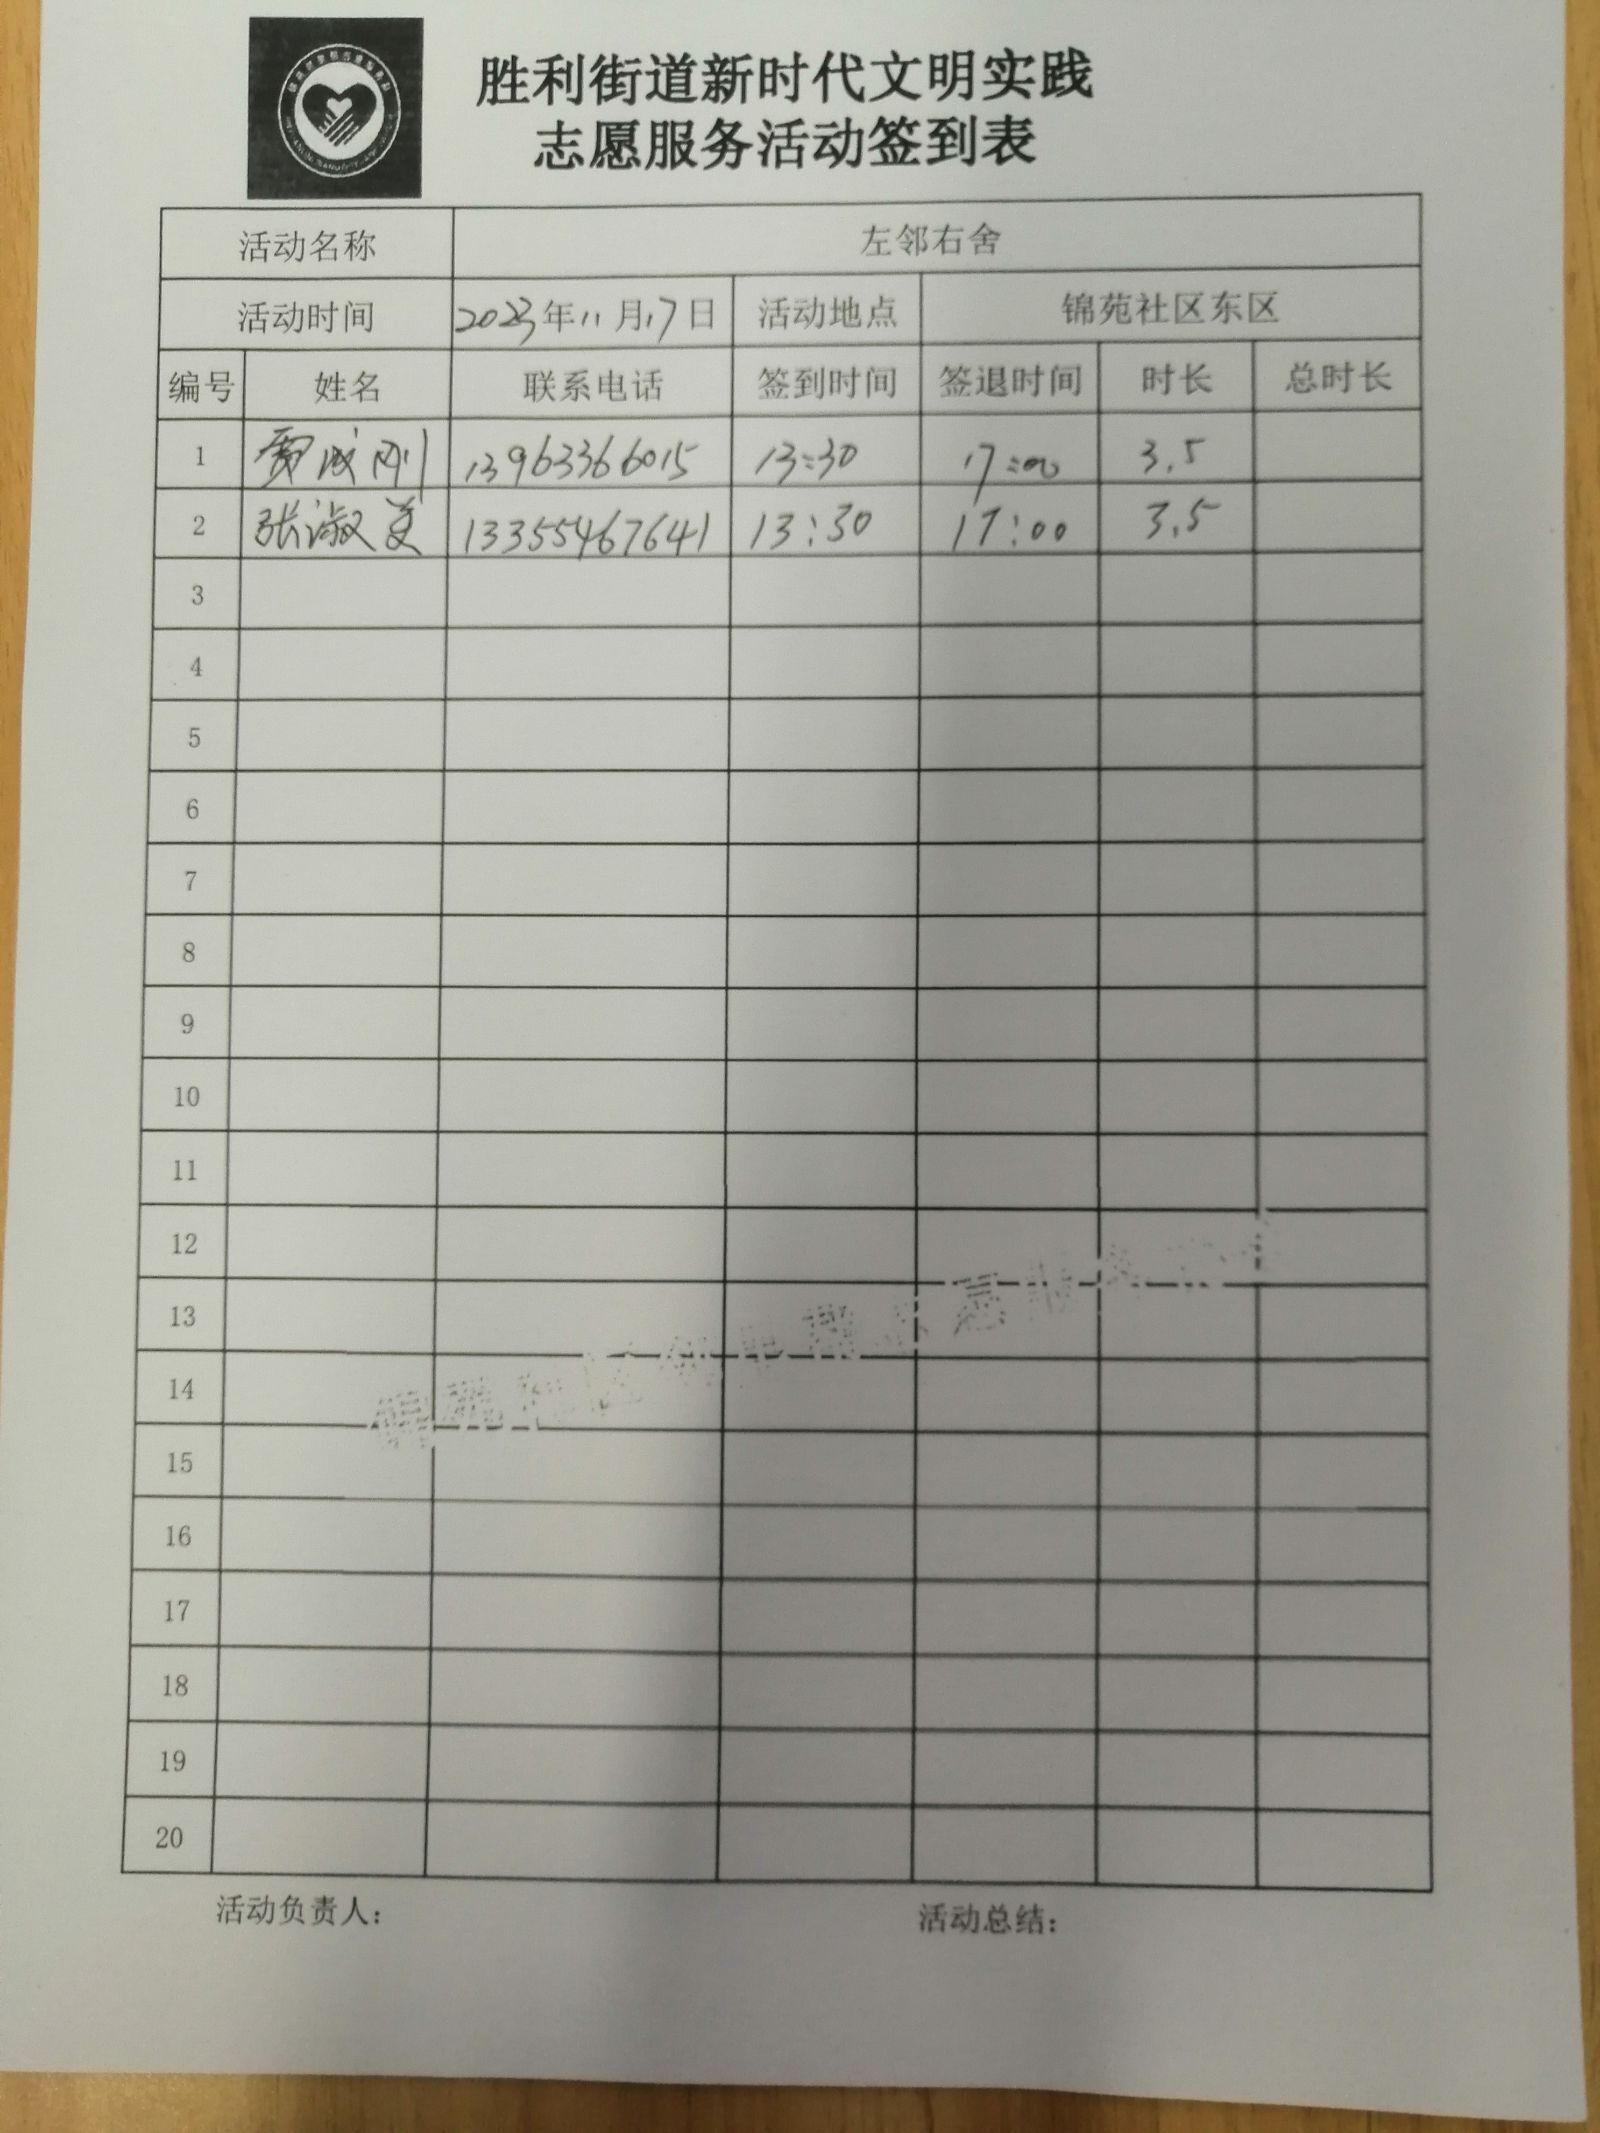 胜利街道新时代文明实践
志愿服务活动签到表
活动名称 左邻右舍
活动时间 2023年11月17日 活动地点 锦苑社区东区
编号 姓名 联系电话 签到时间 签退时间 时长 总时长
1 贾成刚 13963366015 13:30 17:00 3.5
2 张淑美 13355467641 13:30 17:00 3.5
3
4
5
6
7
8
9
10
11
12
13
14
15
16
17
18
19
20
活动负责人: 活动总结: